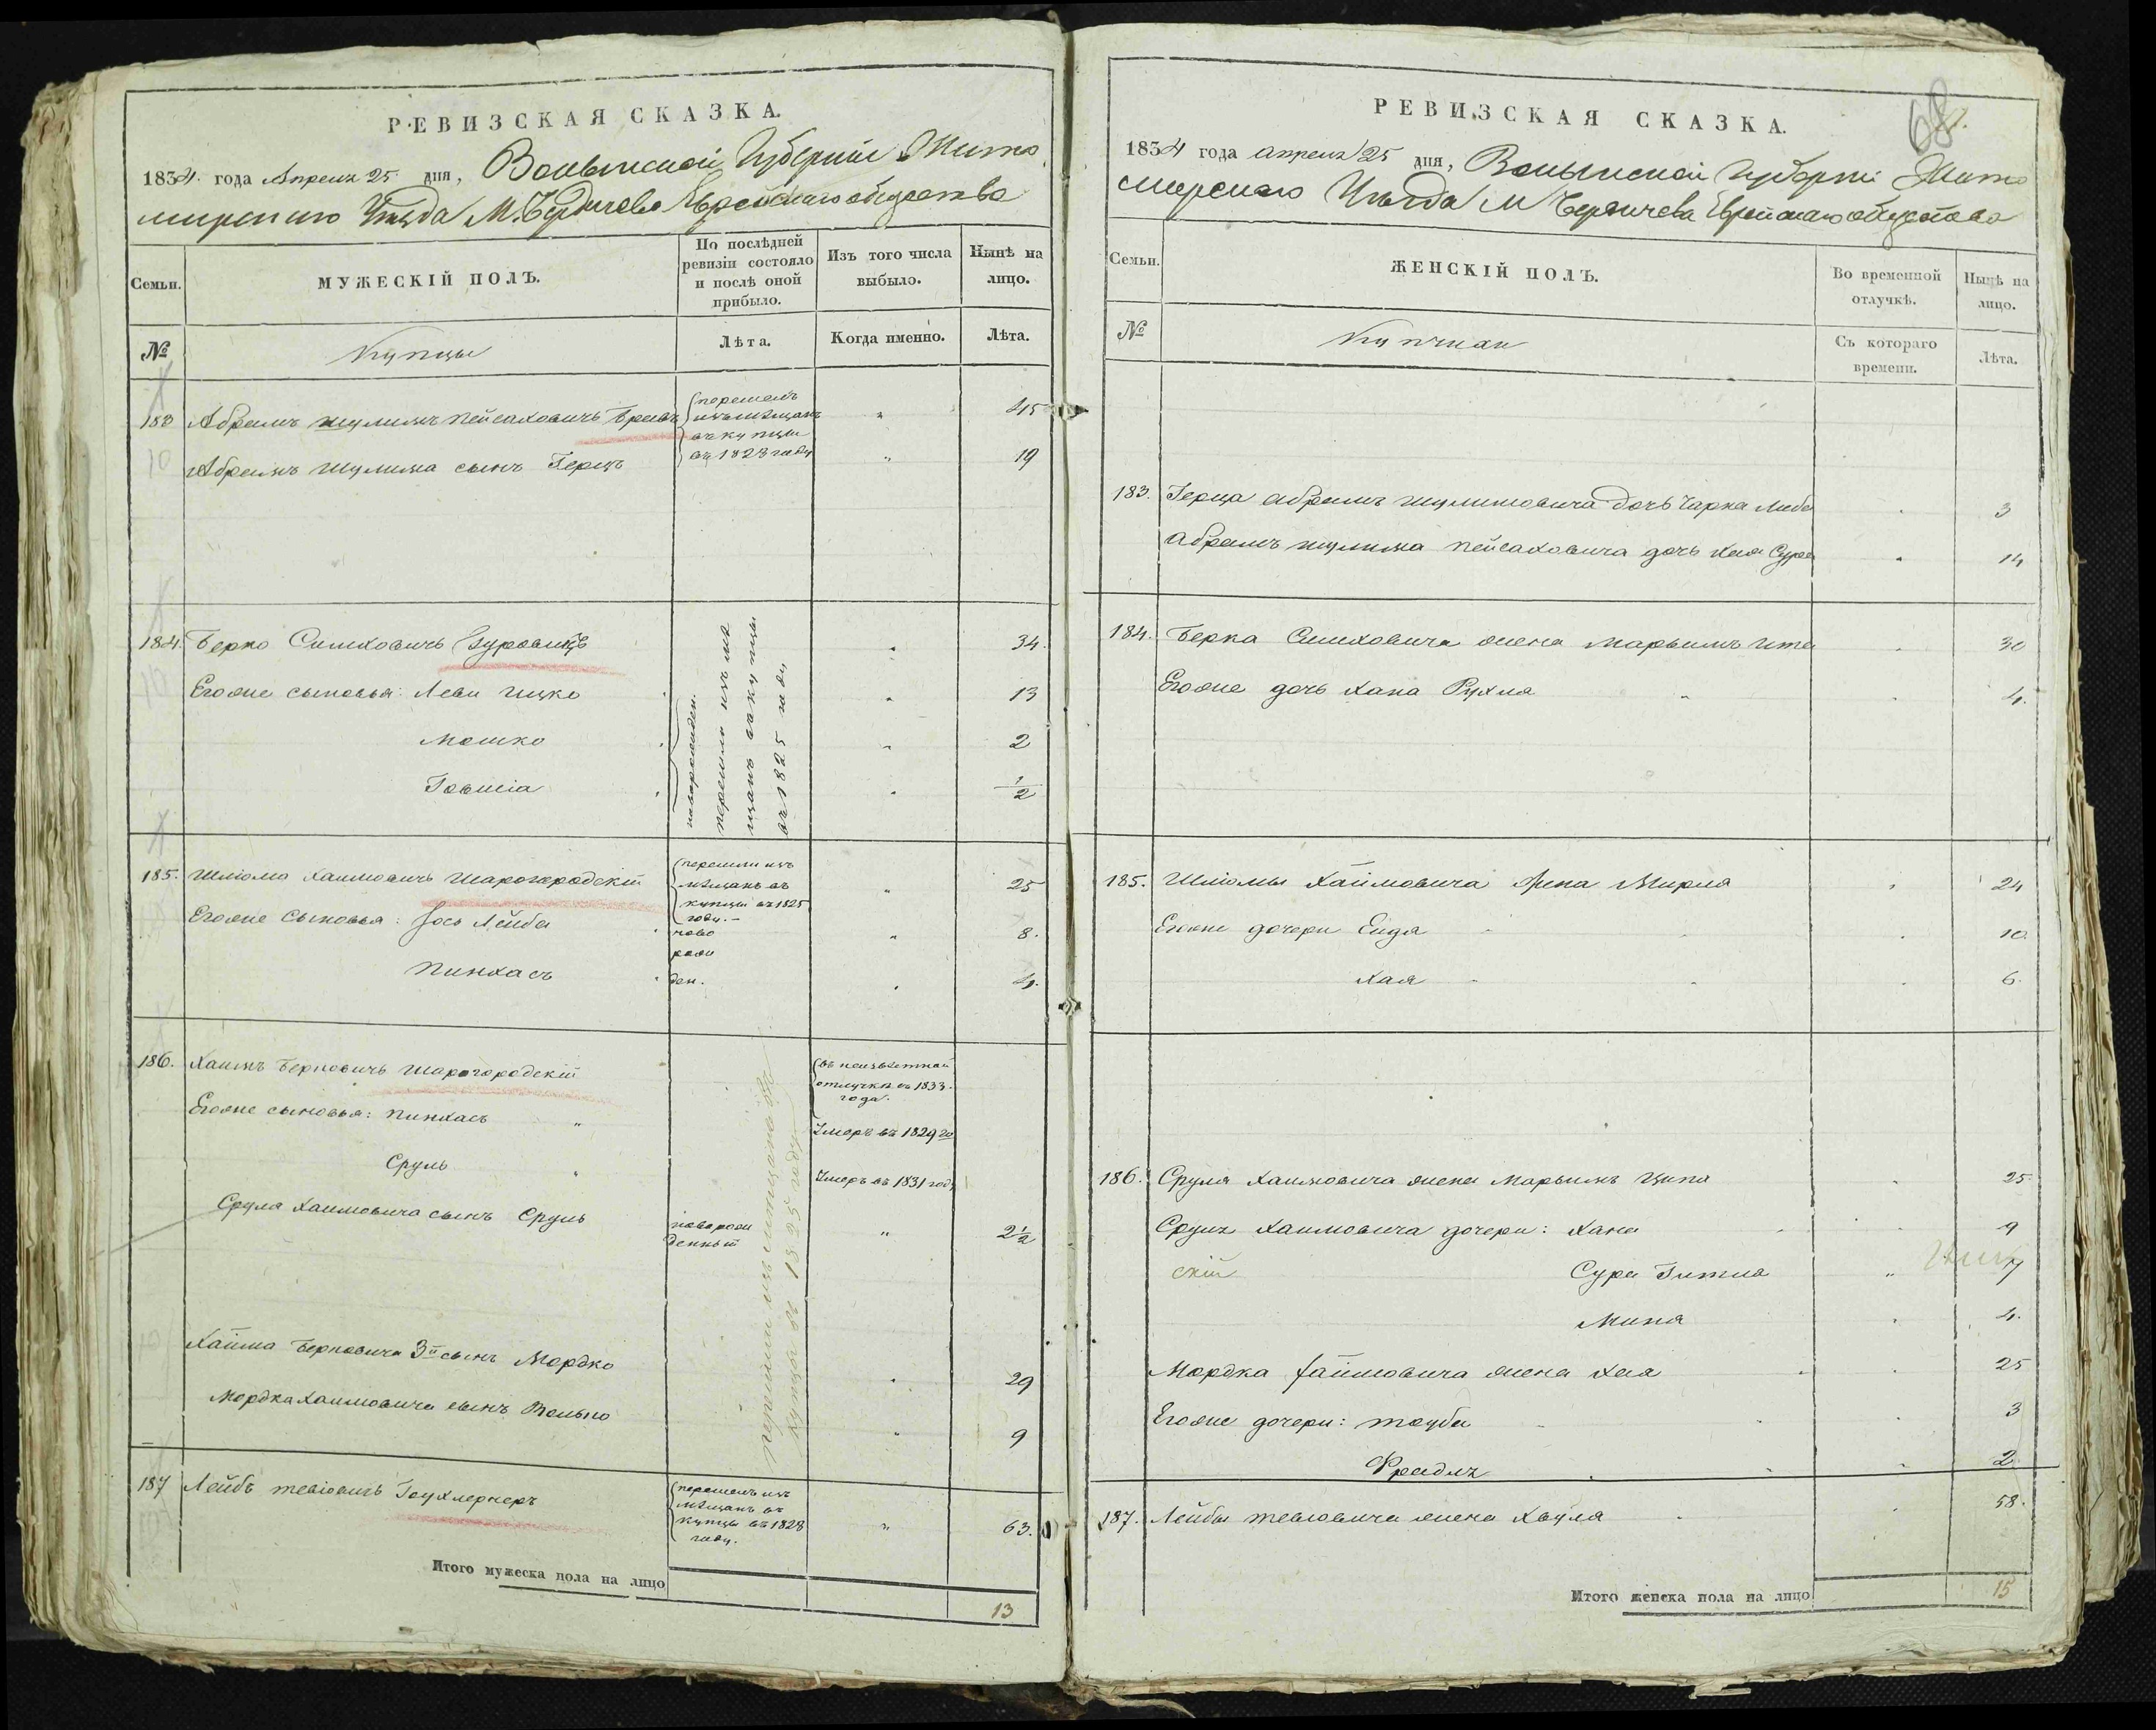 РЕВИЗСКАЯ СКАЗКА.
1834. года Апреля 25 дня, Волынской Губернии Жито
мирского Уезда М. Бердичева Еврейского общества
Семьи.
МУЖЕСКІЙ ПОЛЪ.
По послѣдней
ревизіи состояло
и послѣ оной
прибыло.
Изъ того числа
выбыло.
Нынѣ на
лицо.
№
Купцы
Лѣта.
Когда именно.
Лѣта.
183 Абрамъ Шулимъ Пейсаховичъ " 45
перешелъ
изъ мѣщанъ
въ купцы
въ 1828 году
Абрамъ Шулима сынъ Герцъ " 19
184. Берко Симховичъ Гуровицъ " 34.
Егоже сыновья: Леви Ицко " 13
Мошко " 2
Говшіа " 1/2
новорожден.
перешли изъ мѣ
щанъ въ купцы
въ 1825 году
185. Шліома Хаимовичъ Шарогородскій " 25
перешли изъ
мѣщанъ въ
купцы въ 1825
году. –
Егоже сыновья: Іось Лейба " 8.
Пинхасъ " 4.
ново
рож
ден.
186. Хаимъ Берковичъ Шарогородскій
въ неизвѣстной
отлучкѣ въ 1833.
года.
Егоже сыновья: Пинхасъ " Умеръ въ 1829 го
Сруль " Умеръ въ 1831 году
Сруля Хаимовича сынъ Сруль
новорож
денный
" 2 1/2
Хаима Берковича 3й сынъ Мордко " 29
Мордка Хаимовича сынъ Волько " 9
перешли изъ мещанъ въ
купцы въ 1825 году
187 Лейбъ Тевіовичъ " 63.
перешелъ изъ
мѣщанъ въ
купцы въ 1828
году.
Итого мужеска пола на лицо
13
68
РЕВИЗСКАЯ СКАЗКА.
1834 года апреля 25 дня, Волынской Губерніи Жито
мирского Уѣзда М Бердичева Еврейскаго общества
Семьи.
ЖЕНСКІЙ ПОЛЪ.
Во временной
отлучкѣ.
Нынѣ на
лицо.
№
Купчихи
Съ котораго
времени.
Лѣта.
183. Герца Абрамъ Шулимовича дочь Чарна Либа " 3
Абрамъ Шулима Пейсаховича дочь Хая Сура " 14
184. Берка Симховича жена Марьимъ Ита " 30
Егоже дочь Хана Рухля " 4.
185. Шліомы Хаимовича жена Мирля " 24
Егоже дочери Ейдя " 10
Хая " 6.
186. Сруля Хаимовича жена Марьимъ Ципа " 25.
Сруля Хаимовича дочери: Хана " 9
скій
Сура Гитля " 7
Миня " 4.
Мордка Хаимовича жена Хая " 25
Егоже дочери: Тауба " 3
Фрадля " 2
187. Лейбы Тевіовича жена Хвуля " 58.
Итого женска пола на лицо
15